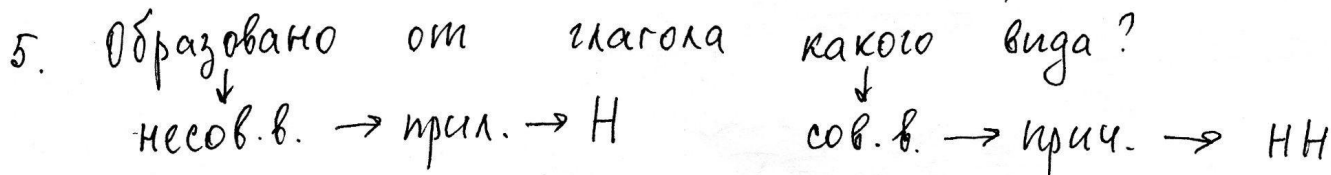 5. Образовано от глагола какого вида?
↓ ↓
несов.в. → прил. → Н сов.в. → прич. → НН